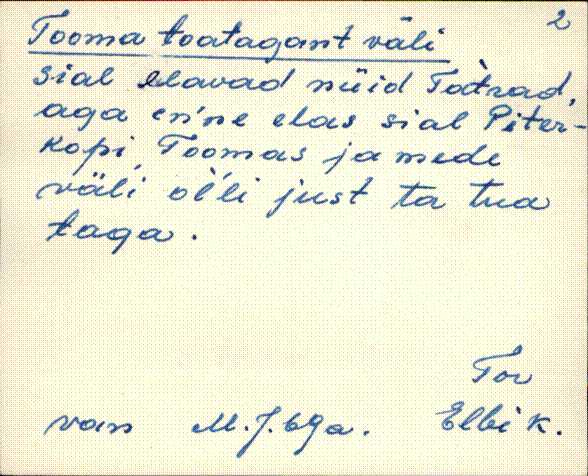 2
Tooma toatagant väli
sial elavad nüid Tatrad,
aga en'ne elas sial Piter-
kopi Toomas ja mede
väli ol'li just ta tua
taga.
Tor
van M. J. 69a. Elbi k.